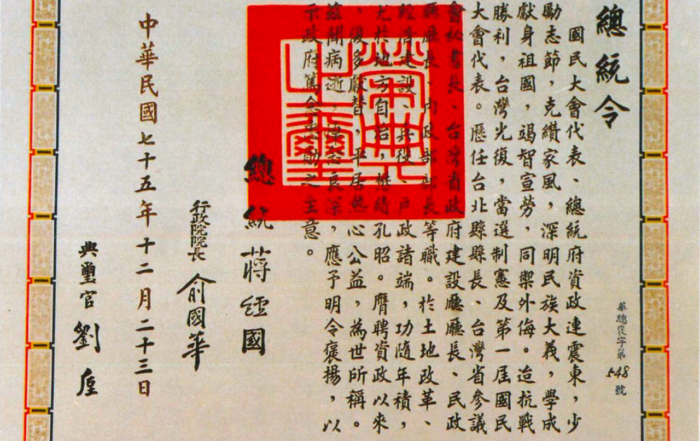 華總褒字第548號
總統令
國民大會代表、總統府資政連震東，少
勵志節，克纘家風，深明民族大義，學成
獻身祖國，竭智宣勞，同禦外侮。迨抗戰
勝利，台灣光復，當選制憲及第一屆國民
大會代表。歷任台北縣縣長、台灣省參議
會秘書長、台灣省政府建設廳廳長、民政
廳廳長、內政部部長等職。於土地改革、
經濟建設、兵役、戶政諸端，功隨年積，
尤於地方自治，懋績孔昭。膺聘資政以來
，復多獻替，平居熱心公益，為世所稱。
茲聞病逝，悼念良深，應予明令褒揚，以
示政府篤念忠勛之至意。
榮典
之璽
總統蔣經國
行政院院長 俞國華
中華民國七十五年十二月二十三日
典璽官 劉垕